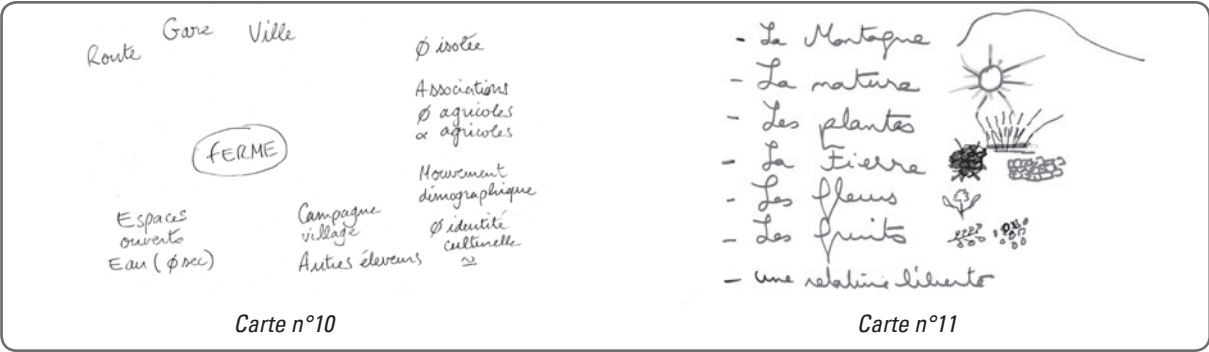 Route Gare Ville
Ø isolée
Associations
Ø agricoles
α agricoles
FERME
Mouvement
démographique
Espaces
ouverts
Eau (Ø sec)
Campagne
village
Autres éleveurs
Ø identité
culturelle
~
Carte n°10
- La Montagne
- La nature
- Les plantes
- La Fierre
- Les fleurs
- Les fruits
- une relative liberto
Carte n°11